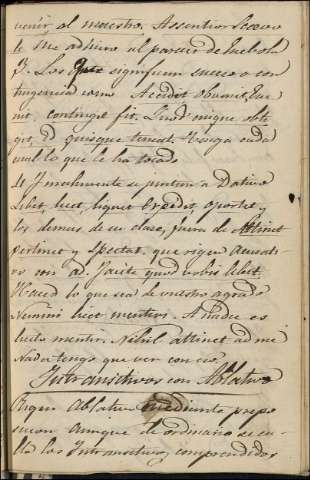 venir, al maestro. Assentior Scevo
le Me adhiero al parecer de
3. Los que significan suceso o con
tingencia como Accidit Obvenit, Eve
nit, contingit fit. Quod cuique obti
git, id quisque teneat. Tenga cada
cual lo que le ha tocado
4. Y malmente se juntan a Dativo
Libet, licet, liquet Expedit, oportet y
los demas de su clase, fuera de Attinet
pertinet y Spectat, que rigen acusati
vo con ad. Facite quod vobis libet.
Haced lo que sea de vuestro agrado
Nemini licet mentiri. A nadie es
licito mentir. Nihil attinet ad me
Nada tengo que ver con eso.
Intransitivos con Ablativo
Rigen Ablativo mediante prepo
sicion aunque de ordinario se ca
lla los Intransitivos, comprendidos